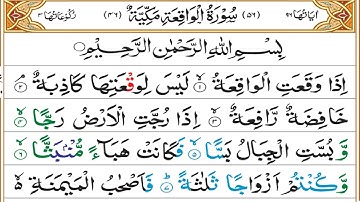 اٰيَاتُهَا ٩٦ (٥٦) سُوْرَةُ الْوَاقِعَةِ مَكِّيَّةٌ (٤٦) رُكُوْعَاتُهَا ٣
بِسْمِ اللّٰهِ الرَّحْمٰنِ الرَّحِيْمِ
اِذَا وَقَعَتِ الْوَاقِعَةُ ۙ۱ لَيْسَ لِوَقْعَتِهَا كَاذِبَةٌ ۘ۲
خَافِضَةٌ رَّافِعَةٌ ۙ۳ اِذَا رُجَّتِ الْاَرْضُ رَجًّا ۙ۴
وَّ بُسَّتِ الْجِبَالُ بَسًّا ۙ۵ فَكَانَتْ هَبَآءً مُّنْۢبَثًّا ۙ۶
وَّ كُنْتُمْ اَزْوَاجًا ثَلٰثَةً ؕ۷ فَاَصْحٰبُ الْمَيْمَنَةِ ۙ۵